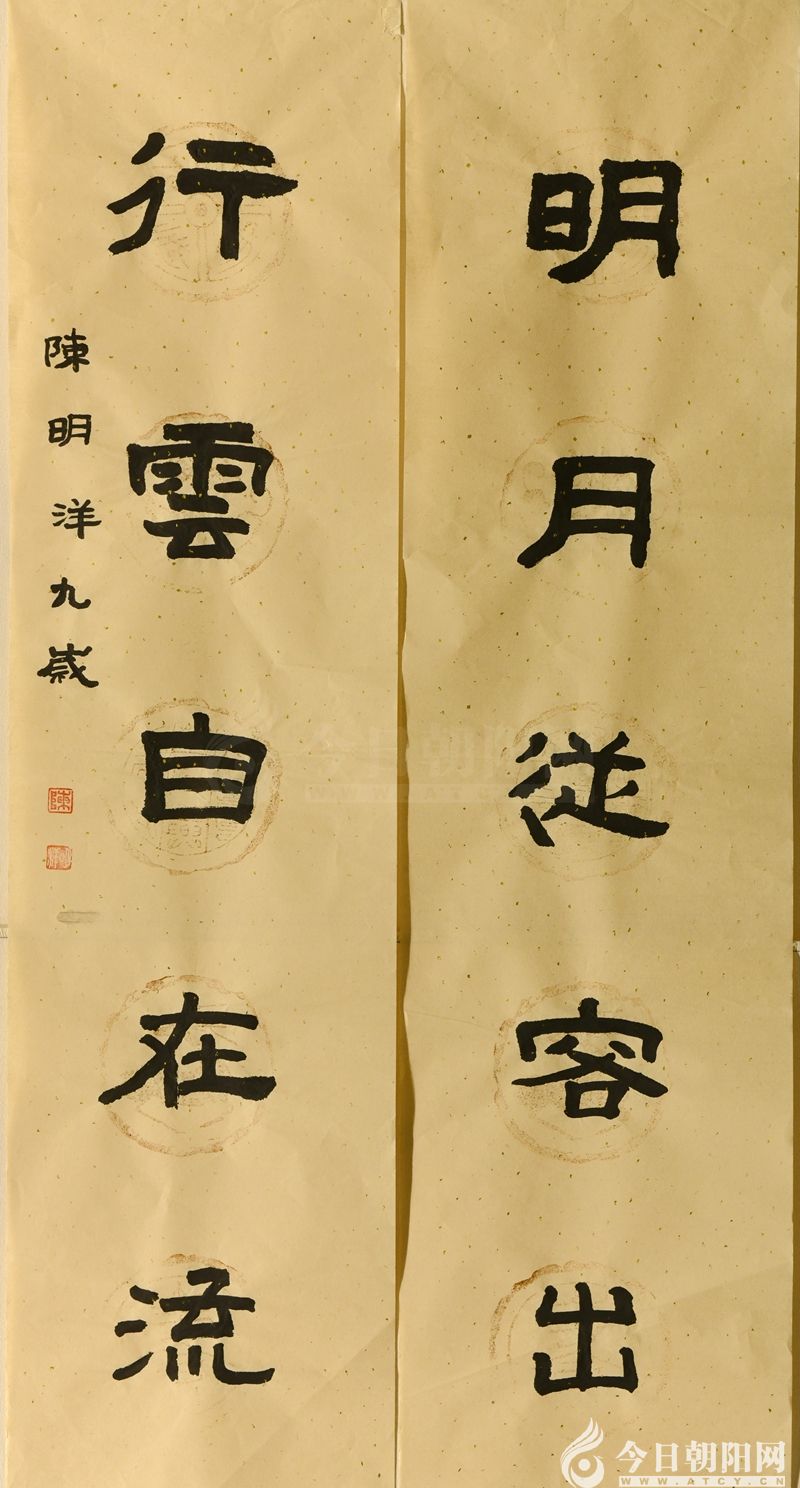 明月從容出
行雲自在流
陳明洋九歲
陳
今日朝阳网
WWW.ATCY.CN